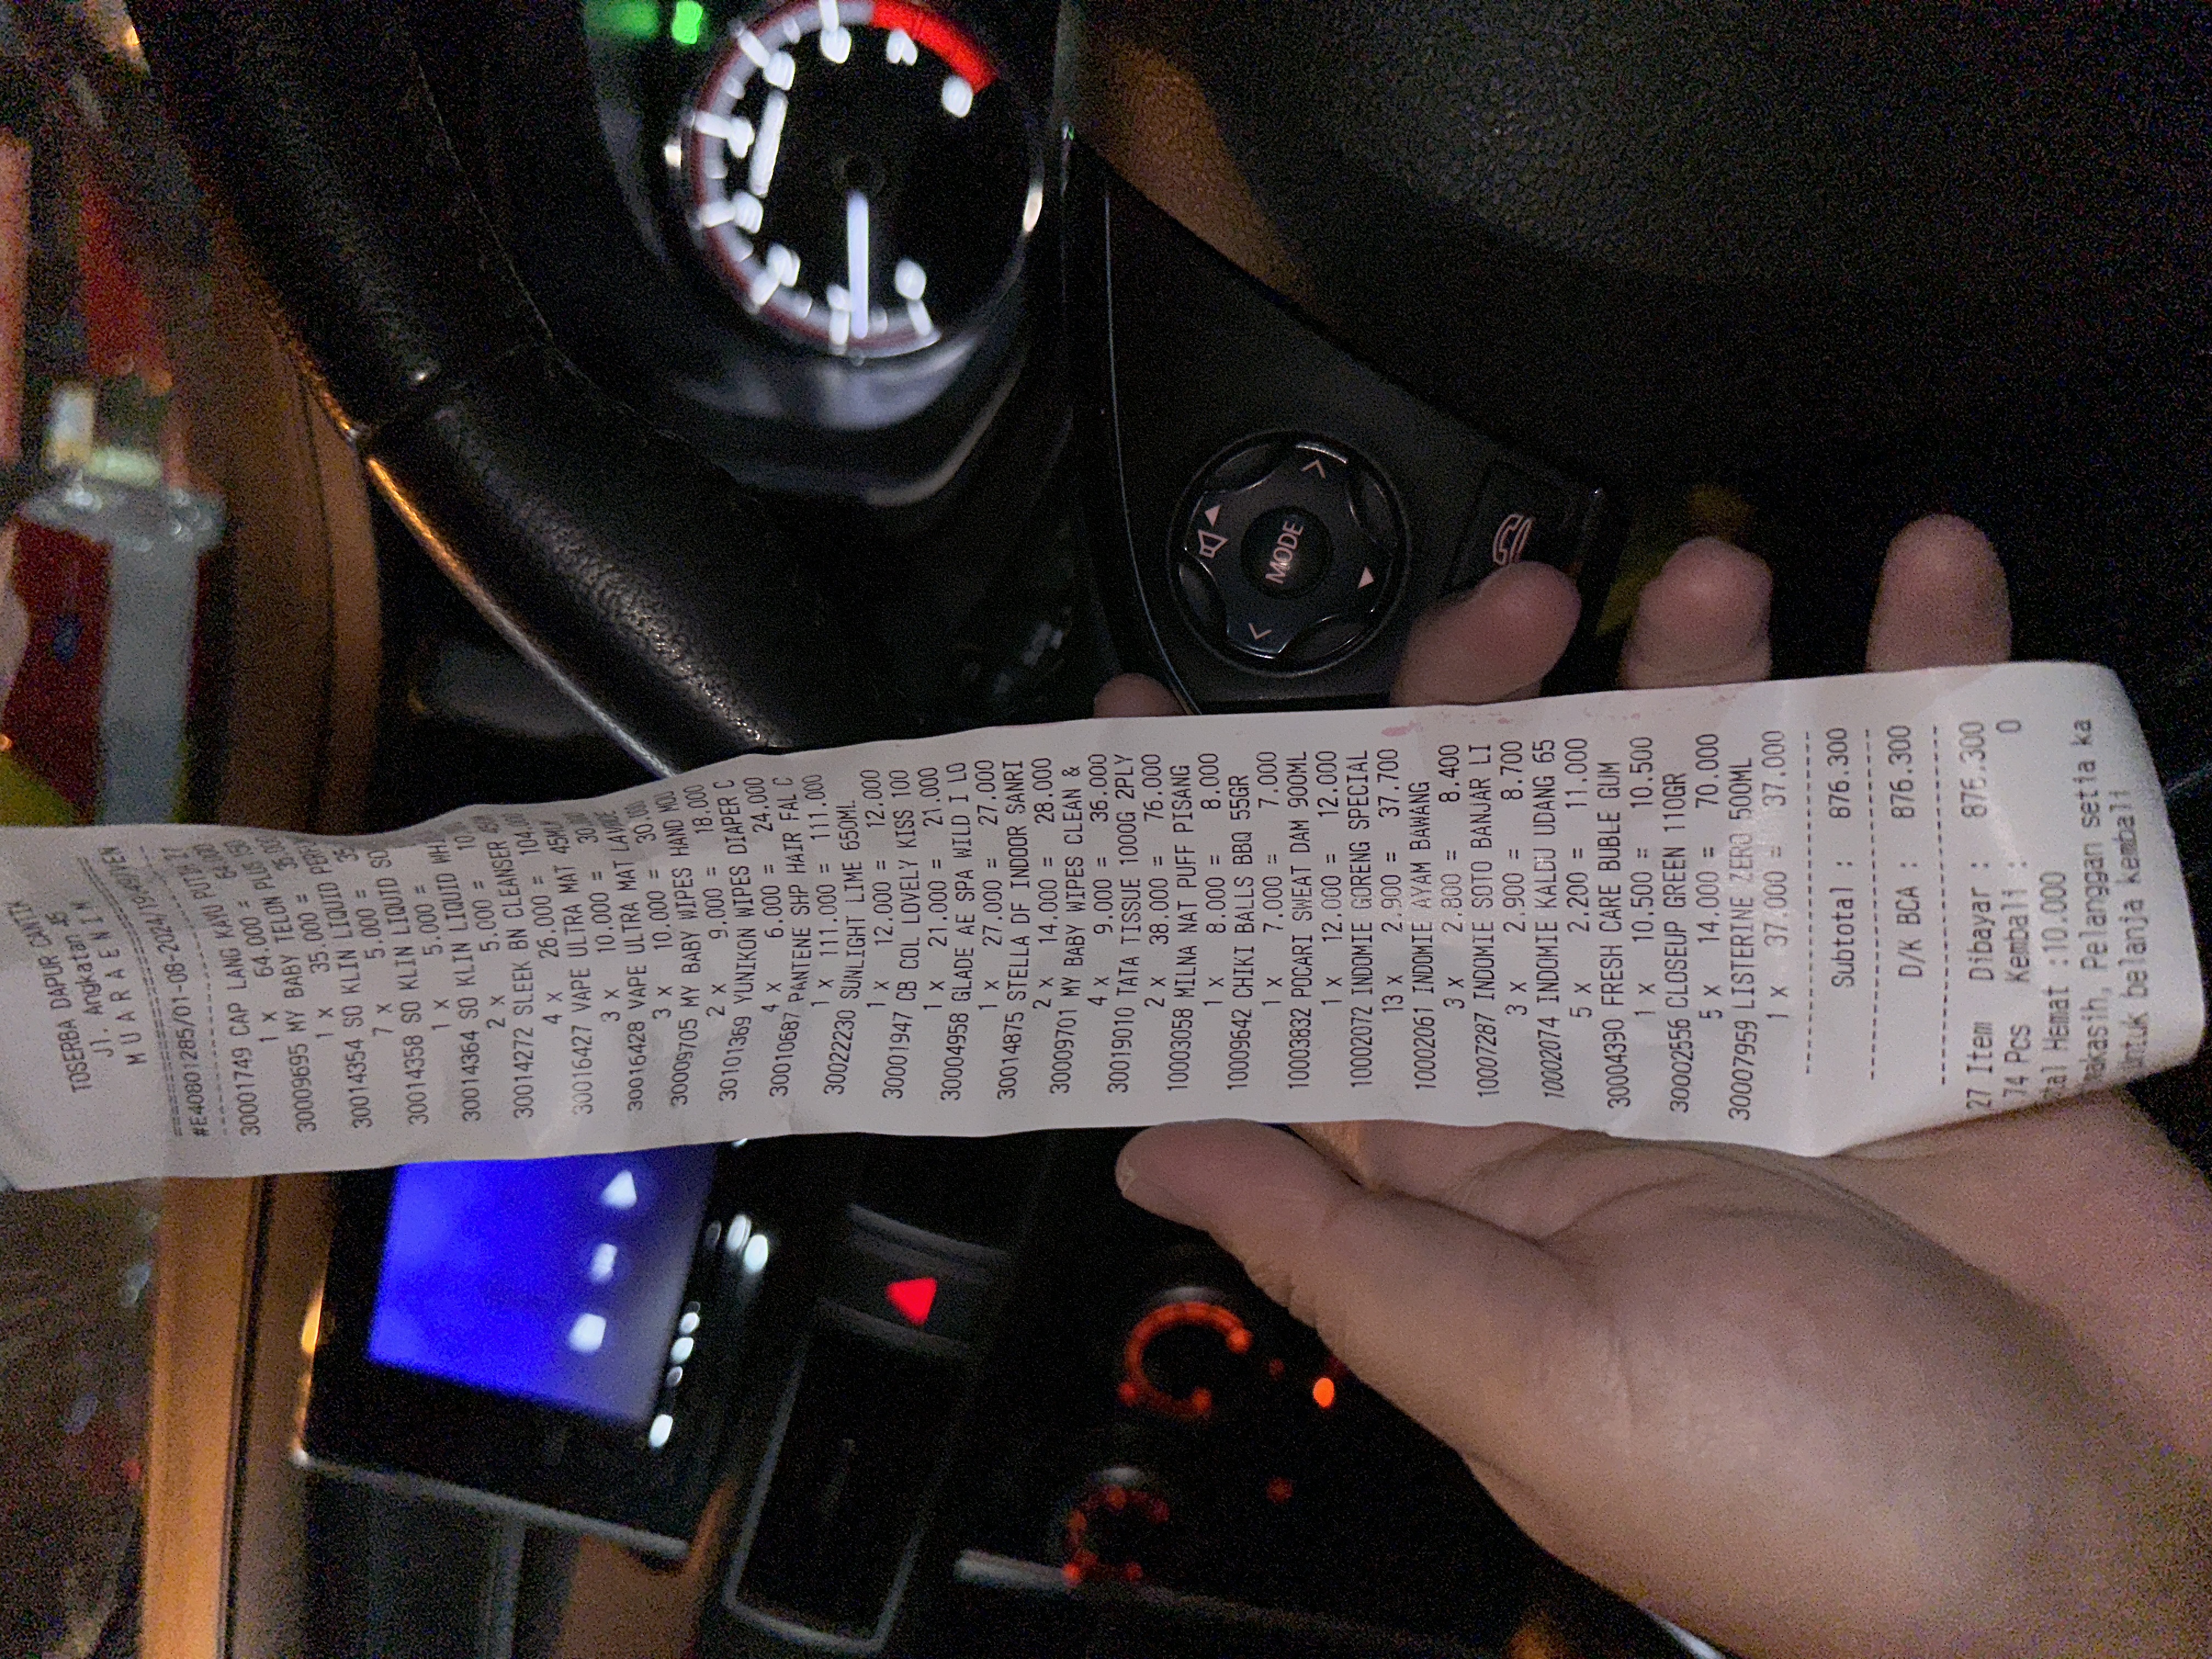 TOSERBA DAPUR CANTIK
Jl. Angkatan 45
M U A R A E N I M
#E40801285/01-08-2024/19:49/VEN
30001749 CAP LANG KAYU PUTIH
1 x 64.000 = 64.000
30009695 MY BABY TELON PLUS
1 x 35.000 =
30014354 SO KLIN LIQUID
7 x 5.000 =
30014358 SO KLIN LIQUID SO
1 x 5.000 =
30014364 SO KLIN LIQUID
2 x 5.000 =
30014272 SLEEK BN CLEANSER
4 x 26.000 =
30016427 VAPE ULTRA MAT
3 x 10.000 =
30016428 VAPE ULTRA MAT
3 x 10.000 = 30.000
30009705 MY BABY WIPES HAND MOU
2 x 9.000 = 18.000
30101369 YUNIKON WIPES DIAPER C
4 x 6.000 = 24.000
30010687 PANTENE SHP HAIR FAL C
1 x 111.000 = 111.000
30022230 SUNLIGHT LIME 650ML
1 x 12.000 = 12.000
30001947 CB COL LOVELY KISS 100
1 x 21.000 = 21.000
30004958 GLADE AE SPA WILD I LO
1 x 27.000 = 27.000
30014875 STELLA DF INDOOR SANRI
2 x 14.000 = 28.000
30009701 MY BABY WIPES CLEAN &
4 x 9.000 = 36.000
30019010 TATA TISSUE 1000G 2PLY
2 x 38.000 = 76.000
10003058 MILNA NAT PUFF PISANG
1 x 8.000 = 8.000
10009642 CHIKI BALLS BBQ 55GR
1 x 7.000 = 7.000
10003832 POCARI SWEAT DAM 900ML
1 x 12.000 = 12.000
10002072 INDOMIE GORENG SPECIAL
13 x 2.900 = 37.700
10002061 INDOMIE AYAM BAWANG
3 x 2.800 = 8.400
10007287 INDOMIE SOTO BANJAR LI
3 x 2.900 = 8.700
10002074 INDOMIE KALDU UDANG 65
5 x 2.200 = 11.000
30004390 FRESH CARE BUBLE GUM
1 x 10.500 = 10.500
30002556 CLOSEUP GREEN 110GR
5 x 14.000 = 70.000
30007959 LISTERINE ZERO 500ML
1 x 37.000 = 37.000
Subtotal : 876.300
D/K BCA : 876.300
27 Item Dibayar : 876.300
74 Pcs Kembali : 0
Hemat :10.000
Pelanggan setia ka
belanja kembali
MODE